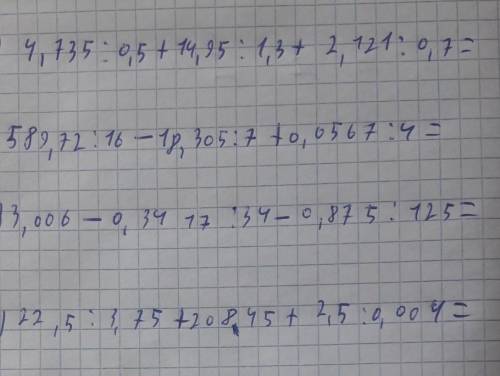 ) 4,735 : 0,5 + 14,95 : 1,3 + 2,121 : 0,7 =
589,72 : 16 - 18,305 : 7 + 0,0567 : 4 =
) 3,006 - 0,3417 : 34 - 0,875 : 125 =
) 22,5 : 3,75 + 208,45 + 2,5 : 0,004 =